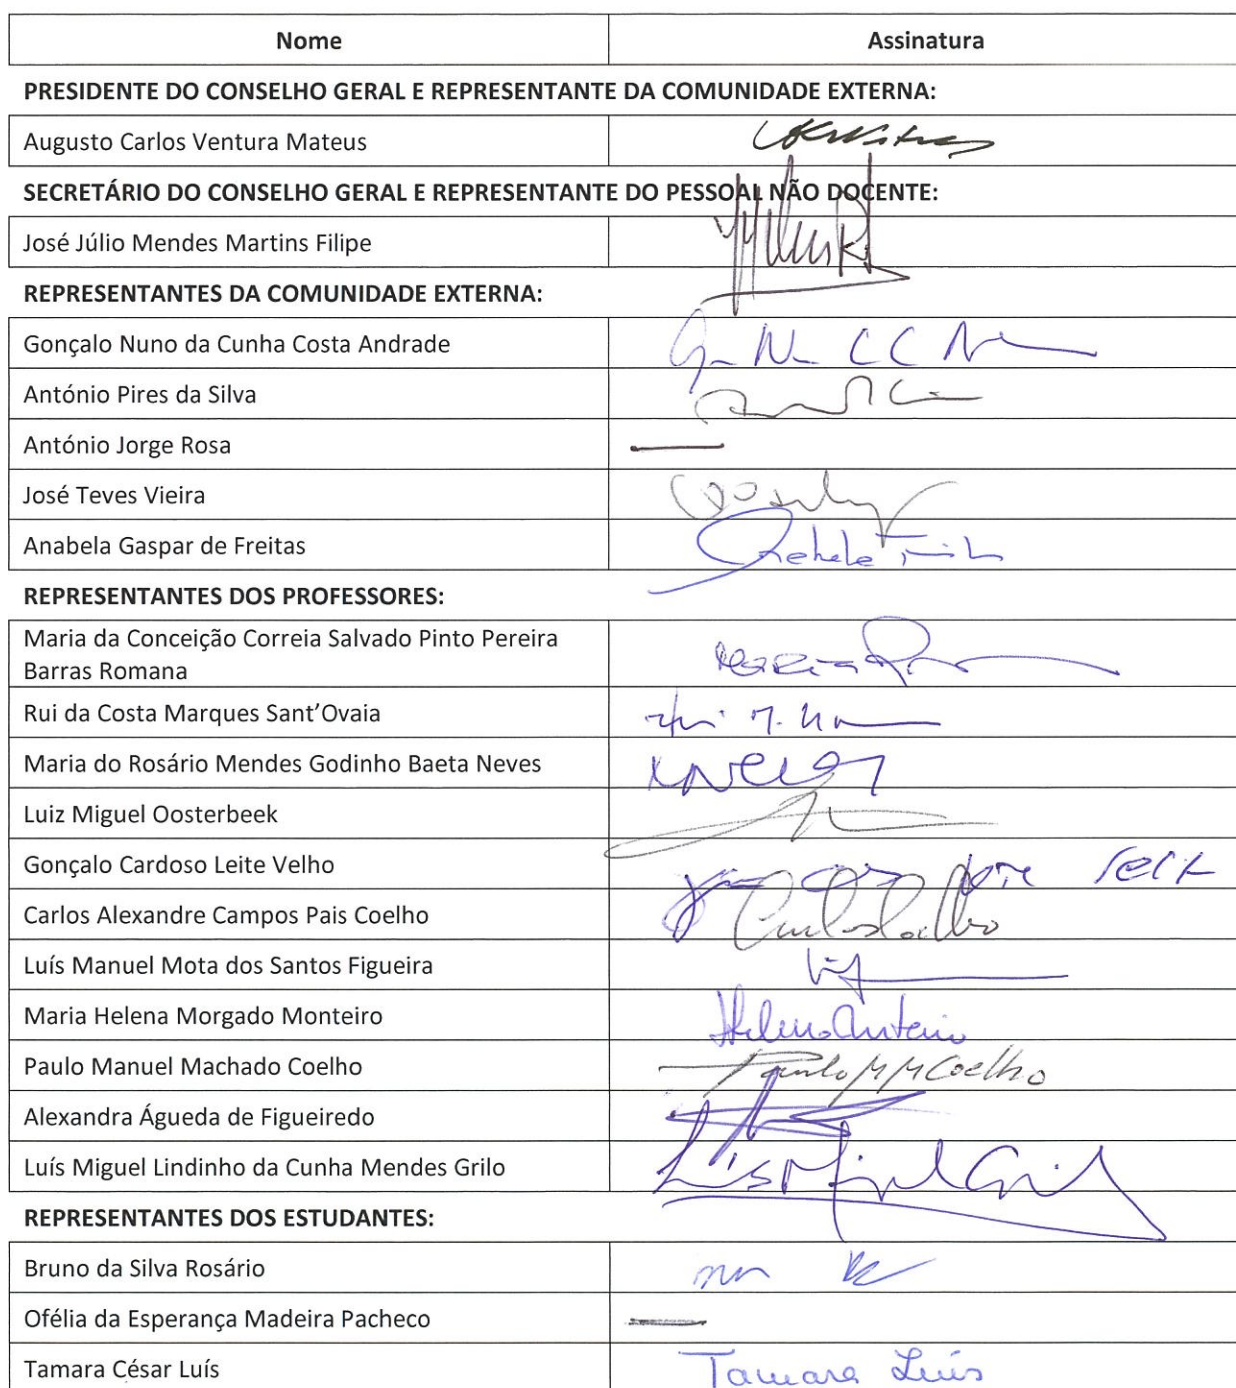 Nome Assinatura
PRESIDENTE DO CONSELHO GERAL E REPRESENTANTE DA COMUNIDADE EXTERNA:
Augusto Carlos Ventura Mateus
SECRETÁRIO DO CONSELHO GERAL E REPRESENTANTE DO PESSOAL NÃO DOCENTE:
José Júlio Mendes Martins Filipe
REPRESENTANTES DA COMUNIDADE EXTERNA:
Gonçalo Nuno da Cunha Costa Andrade
António Pires da Silva
António Jorge Rosa
José Teves Vieira
Anabela Gaspar de Freitas
REPRESENTANTES DOS PROFESSORES:
Maria da Conceição Correia Salvado Pinto Pereira
Barras Romana
Rui da Costa Marques Sant’Ovaia
Maria do Rosário Mendes Godinho Baeta Neves
Luiz Miguel Oosterbeek
Gonçalo Cardoso Leite Velho
Carlos Alexandre Campos Pais Coelho Carlos Coelho
Luís Manuel Mota dos Santos Figueira
Maria Helena Morgado Monteiro
Paulo Manuel Machado Coelho Paulo M M Coelho
Alexandra Águeda de Figueiredo
Luís Miguel Lindinho da Cunha Mendes Grilo Luís Miguel Grilo
REPRESENTANTES DOS ESTUDANTES:
Bruno da Silva Rosário
Ofélia da Esperança Madeira Pacheco
Tamara César Luís Tamara Luís